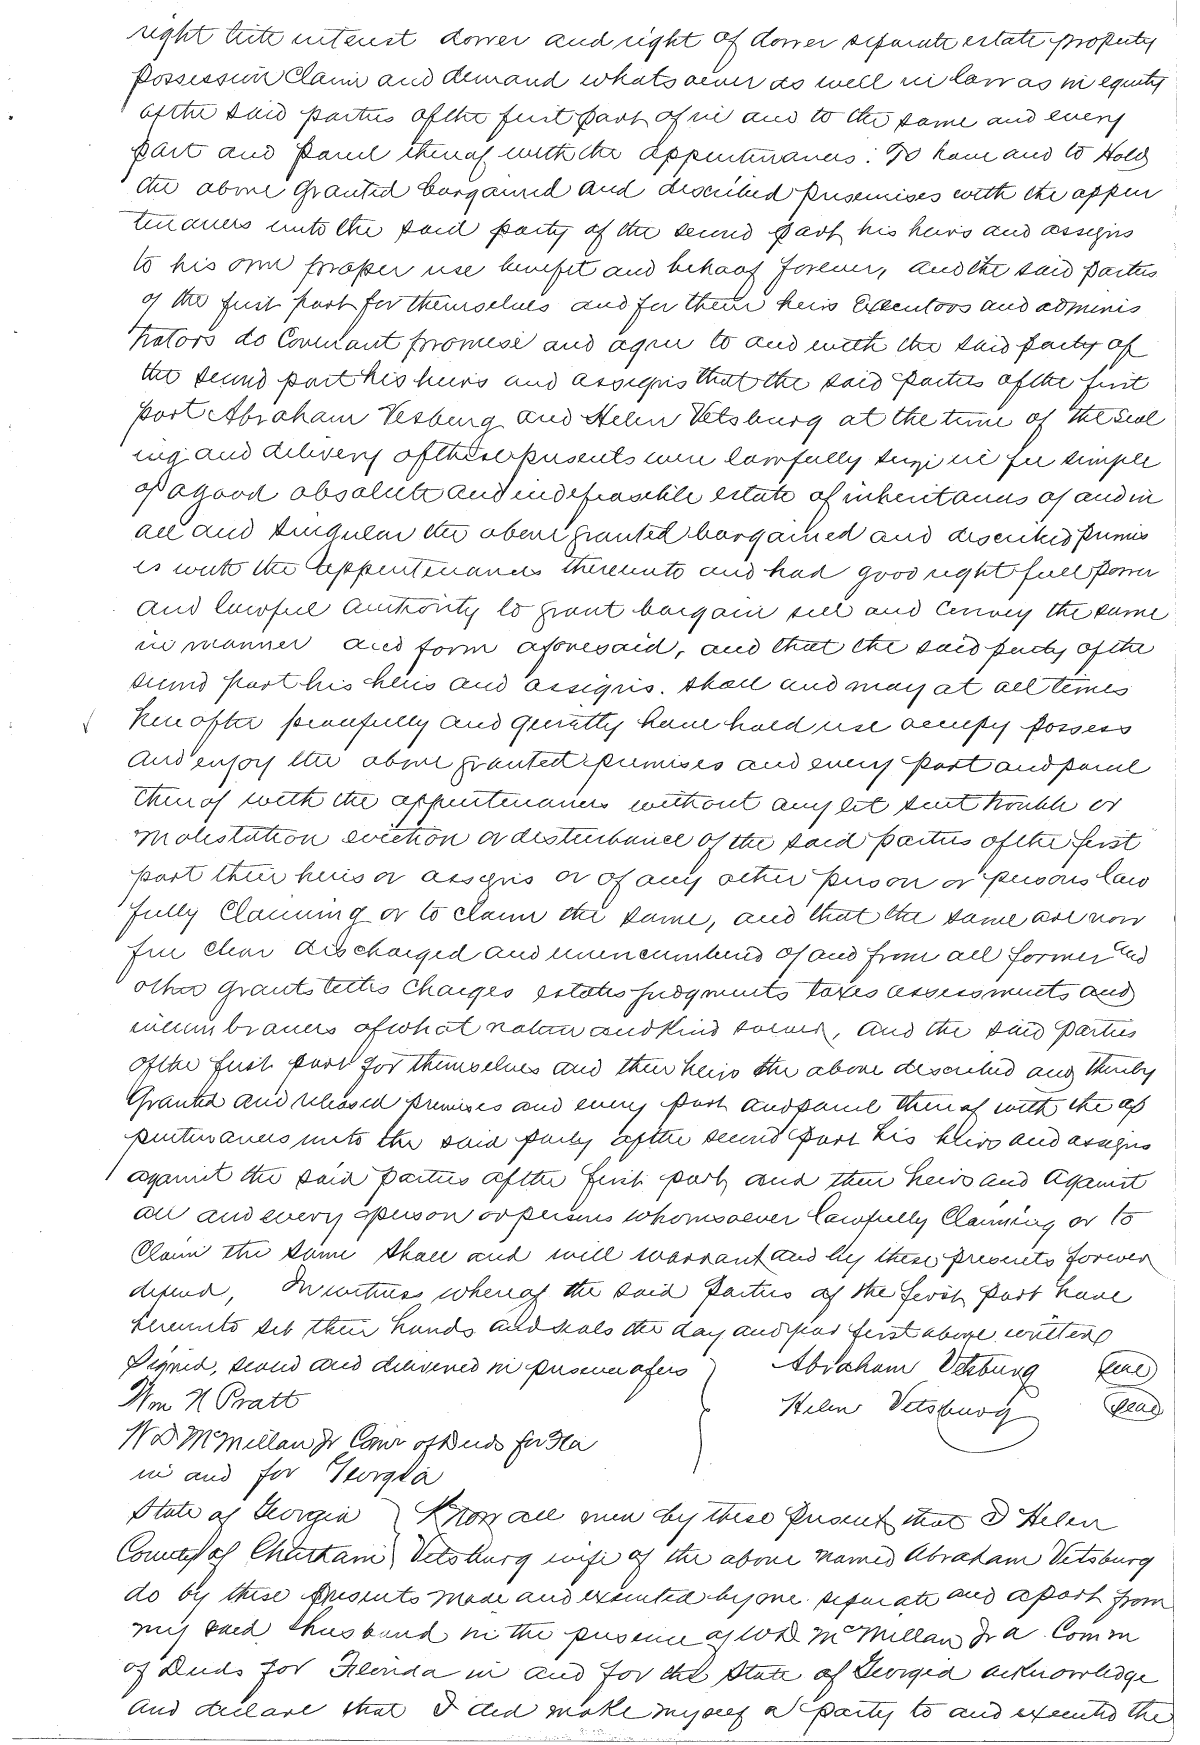 right title interest dower and right of dower separate estate property
possession claim and demand whatsoever as well in law as in equity
of the said parties of the first part of in and to the same and every
part and parcel thereof with the appurtenances: To have and to Hold
the above granted bargained and described premises with the appur
tenances unto the said party of the second part his heirs and assigns
to his own proper use benefit and behoof forever, and the said parties
of the first part for themselves and for their heirs Executors and adminis
trators do Covenant promise and agree to and with the said party of
the second part his heirs and assigns that the said parties of the first
part Abraham Vesburg and Helen Vetsburg at the time of the seal
ing and delivery of these presents were lawfully seized in fee simple
of a good absolute and indefeasible estate of inheritances of and in
all and singular the above granted bargained and described premis
es with the appurtenances thereunto and had good right full power
and lawful authority to grant bargain sell and convey the same
in manner and form aforesaid, and that the said party of the
second part his heirs and assigns. shall and may at all times
hereafter peacefully and quietly have hold use occupy possess
and enjoy the above granted premises and every part and parcel
thereof with the appurtenances without any let suit trouble or
molestation eviction or disturbance of the said parties of the first
part their heirs or assigns or of any other person or persons law
fully claiming or to claim the same, and that the same are now
free clear discharged and unencumbered of and from all former and
other grants titles charges estates judgments taxes assessments and
incumbrances of what nature and kind soever, and the said parties
of the first part for themselves and their heirs the above described and thereby
Granted and released premises and every part and parcel thereof with the ap
purtenances unto the said party of the second part his heirs and assigns
against the said parties of the first part and their heirs and Against
all and every person or persons whomsoever lawfully Claiming or to
Claim the same shall and will warrant and by these presents forever
defend, In witness whereof the said parties of the first part have
hereunto set their hands and seals the day and year first above written
Signed, sealed and delivered in presence of us Abraham Vetsburg seal
Wm N Pratt Helen Vetsburg seal
W D McMillan Jr Comr of Deeds for Fla
in and for Georgia
State of Georgia } Know all men by these Present that I Helen
County of Chatham } Vetsburg wife of the above named Abraham Vetsburg
do by these presents made and executed by me separate and apart from
my said husband in the presence of W D McMillan Jr a Comm
of Deeds for Florida in and for the State of Georgia acknowledge
and declare that I did make myself a party to and executed the